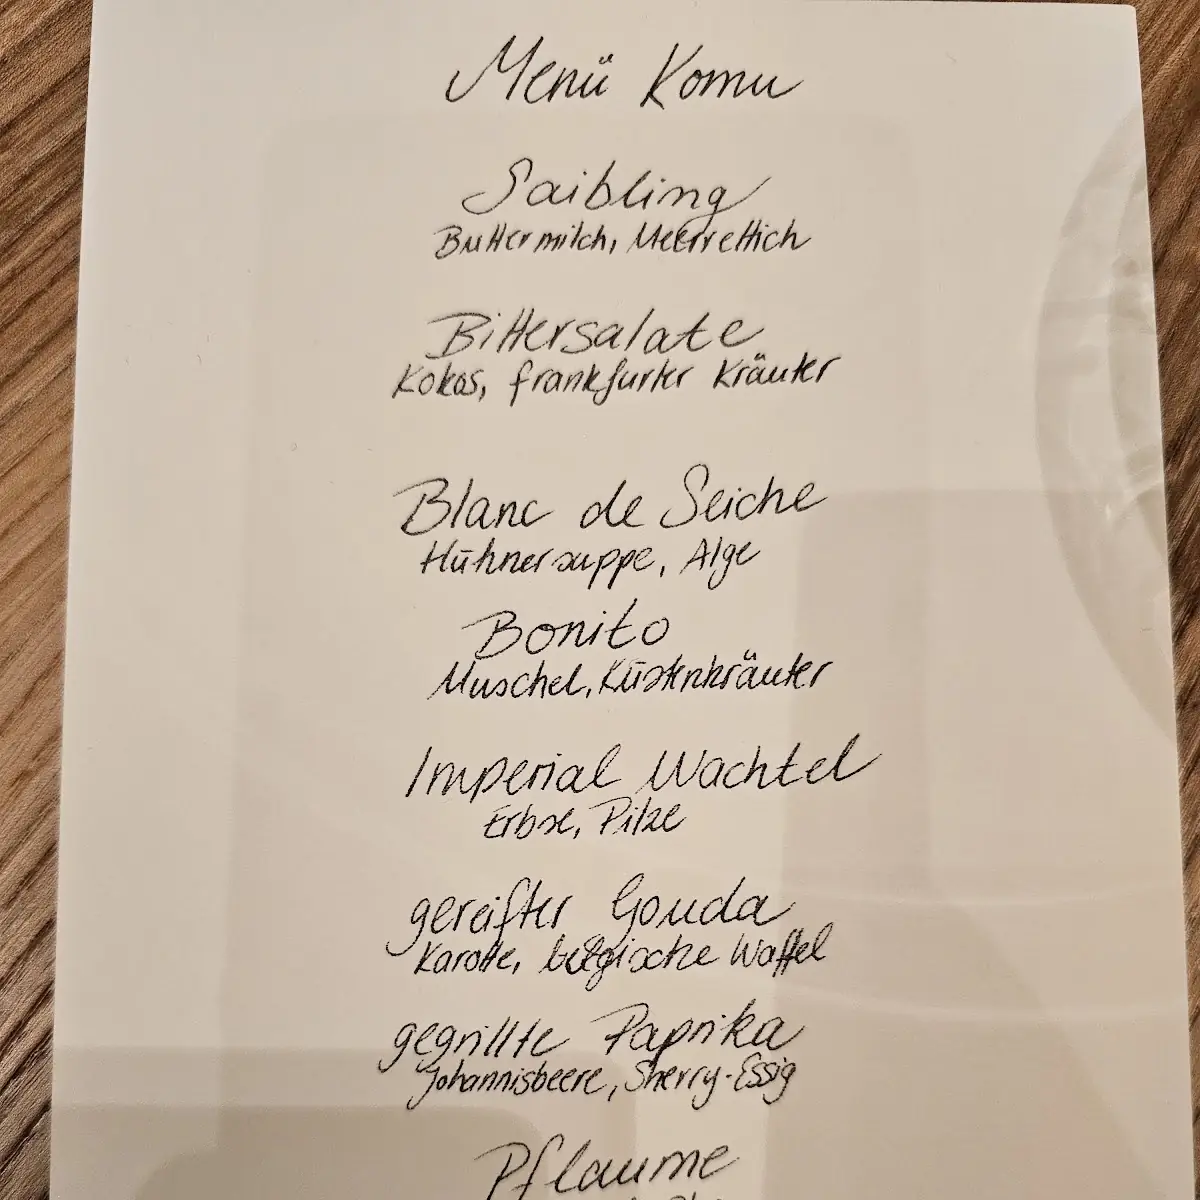 Menü Komu
Saibling
Buttermilch, Meerrettich
Bittersalate
Kokos, frankfurter Kräuter
Blanc de Seiche
Hühnersuppe, Alge
Bonito
Muschel, Küstenkräuter
Imperial Wachtel
Erbse, Pilze
gereifter Gouda
Karotte, belgische Waffel
gegrillte Paprika
Johannisbeere, Sherry-Essig
Pflaume